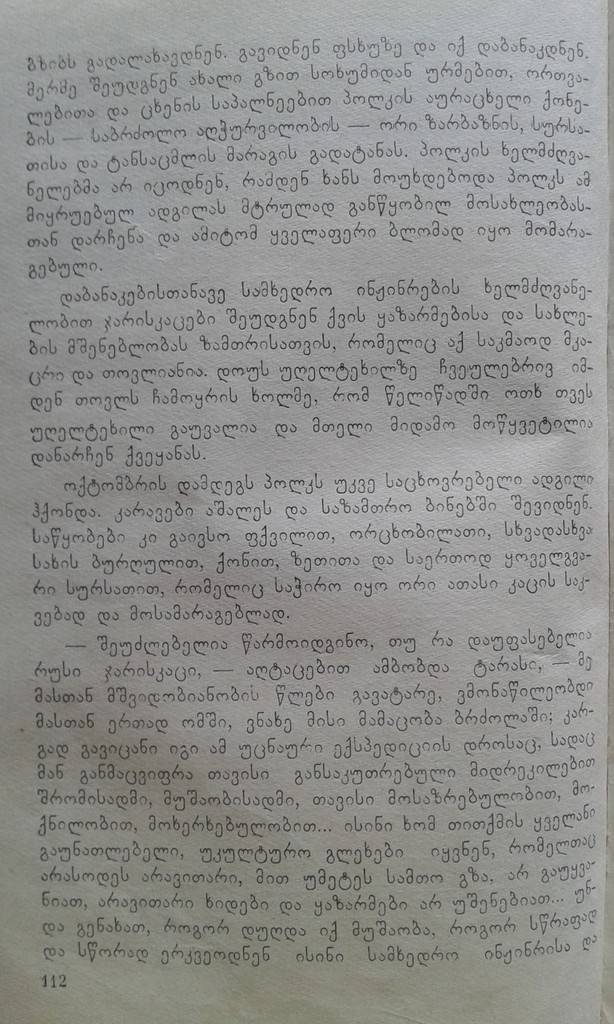 გზიბს გადალახავდნენ. გავიდნენ ფსხუზე და იქ დაბანაკდნენ.
მერმე შეუდგნენ ახალი გზით სოხუმიდან ურმებით, ორთვა-
ლებითა და ცხენის საპალნეებით პოლკის აურაცხელი ქონე-
ბის — საბრძოლო აღჭურვილობის — ორი ზარბაზნის, სურსა-
თისა და ტანსაცმლის მარაგის გადატანას. პოლკის ხელმძღვა-
ნელებმა არ იცოდნენ, რამდენ ხანს მოუხდებოდა პოლკს ამ
მიყრუებულ ადგილას მტრულად განწყობილ მოსახლეობას-
თან დარჩენა და ამიტომ ყველაფერი ბლომად იყო მომარა-
გებული.
დაბანაკებისთანავე სამხედრო ინჟინრების ხელმძღვანე-
ლობით ჯარისკაცები შეუდგნენ ქვის ყაზარმებისა და სახლე-
ბის მშენებლობას ზამთრისათვის, რომელიც აქ საკმაოდ მკა-
ცრი და თოვლიანია. დოუს უღელტეხილზე ჩვეულებრივ იმ-
დენ თოვლს ჩამოყრის ხოლმე, რომ წელიწადში ოთხ თვეს
უღელტეხილი გაუვალია და მთელი მიდამო მოწყვეტილია
დანარჩენ ქვეყანას.
ოქტომბრის დამდეგს პოლკს უკვე საცხოვრებელი ადგილი
ჰქონდა. კარავები აშალეს და საზამთრო ბინებში შევიდნენ.
საწყობები კი გაივსო ფქვილით, ორცხობილათი, სხვადასხვა
სახის ბურღულით, ქონით, ზეთითა და საერთოდ ყოველგვა-
რი სურსათით, რომელიც საჭირო იყო ორი ათასი კაცის საკ-
ვებად და მოსამარაგებლად.
— შეუძლებელია წარმოიდგინო, თუ რა დაუფასებელია
რუსი ჯარისკაცი, — აღტაცებით ამბობდა ტარასი, — მე
მასთან მშვიდობიანობის წლები გავატარე, ვმონაწილეობდი
მასთან ერთად ომში, ვნახე მისი მამაცობა ბრძოლაში; კარ-
გად გავიცანი იგი ამ უცნაური ექსპედიციის დროსაც, სადაც
მან განმაცვიფრა თავისი განსაკუთრებული მიდრეკილებით
შრომისადმი, მუშაობისადმი, თავისი მოსაზრებულობით, მო-
ქნილობით, მოხერხებულობით... ისინი ხომ თითქმის ყველანი
გაუნათლებელი, უკულტურო გლეხები იყვნენ, რომელთაც
არასოდეს არავითარი, მით უმეტეს სამთო გზა, არ გაუყვა-
ნიათ, არავითარი ხიდები და ყაზარმები არ უშენებიათ... უნ-
და გენახათ, როგორ დუღდა იქ მუშაობა, როგორ სწრაფად
და სწორად ერკვეოდნენ ისინი სამხედრო ინჟინრისა და
112